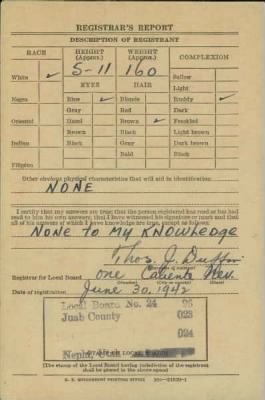 REGISTRAR'S REPORT
DESCRIPTION OF REGISTRANT
RACE HEIGHT (Approx.) WEIGHT (Approx.) COMPLEXION
5-11 160
White ✓ Sallow
EYES HAIR Light
Negro Blue ✓ Blonde Ruddy ✓
Gray Red Dark
Oriental Hazel Brown ✓ Freckled
Brown Black Light brown
Indian Black Gray Dark brown
Bald Black
Filipino
Other obvious physical characteristics that will aid in identification
NONE
I certify that my answers are true; that the person registered has read or has had
read to him his own answers; that I have witnessed his signature or mark and that
all of his answers of which I have knowledge are true, except as follows:
NONE TO MY KNOWLEDGE
Thos. J.
Registrar for Local Board one Caliente Nev.
(Number) (City or county) (State)
Date of registration June 30, 1942
Local Board No. 24 26
Juab County 023
024
Nephi,
(The stamp of the Local Board having jurisdiction of the registrant
shall be placed in the above space)
U. S. GOVERNMENT PRINTING OFFICE